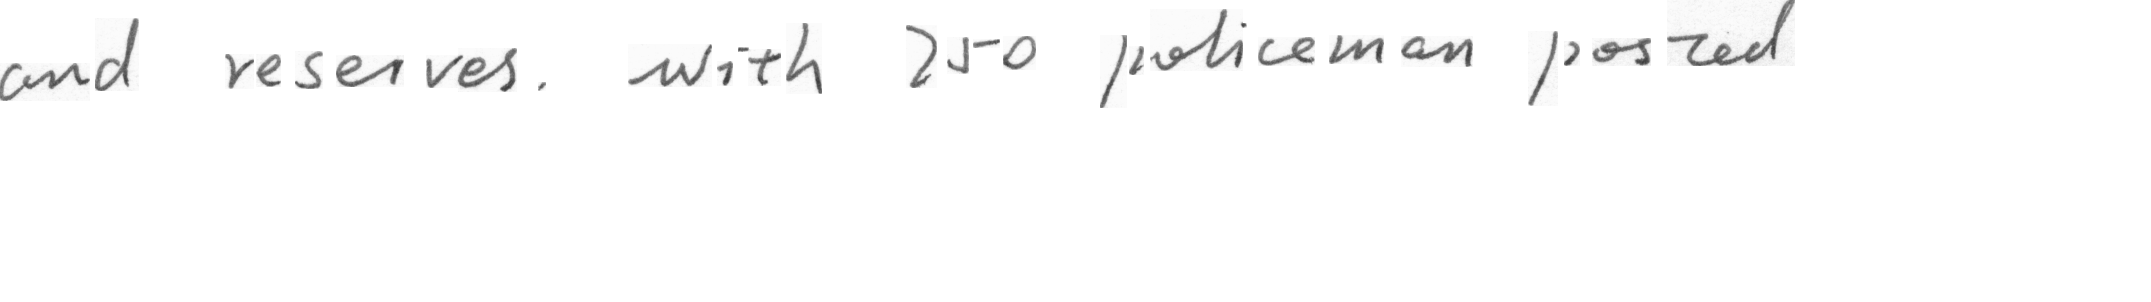 and reserves. with 250 policeman posted